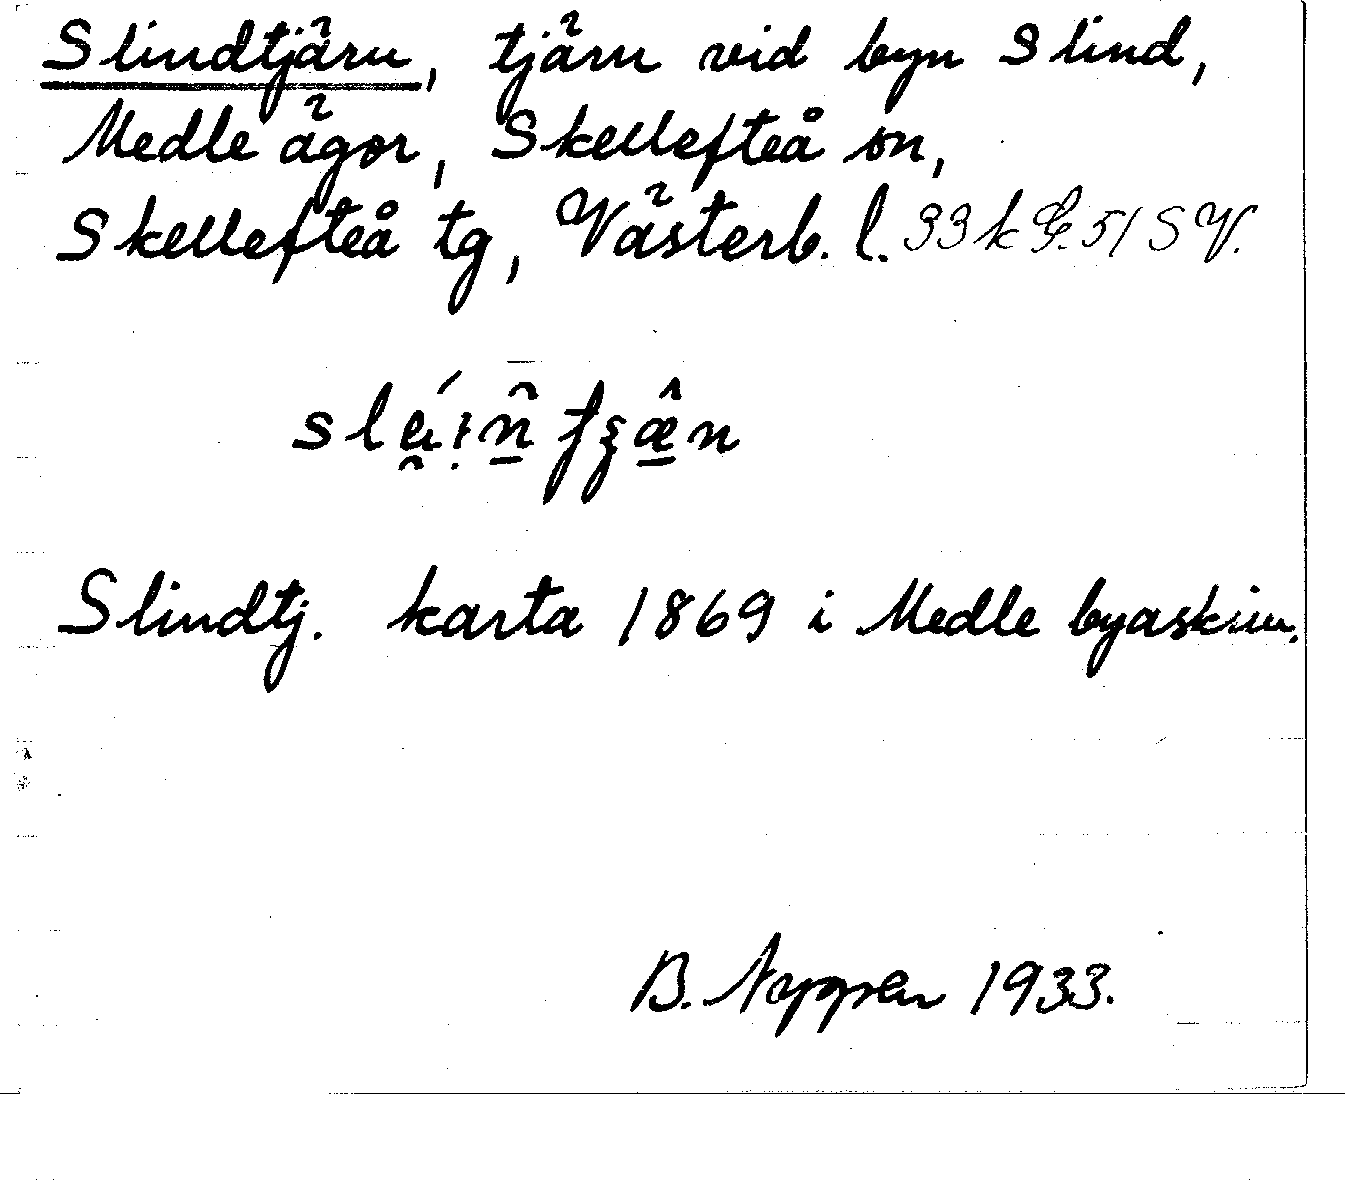 Slindtjärn, tjärn vid byn Slind,
Medle ägor, Skellefteå sn,
Skellefteå tg, Västerb. l. 33 k 51 SV.
Slindtj. karta 1869 i Medle byaskinn.
B. Nygren 1933.